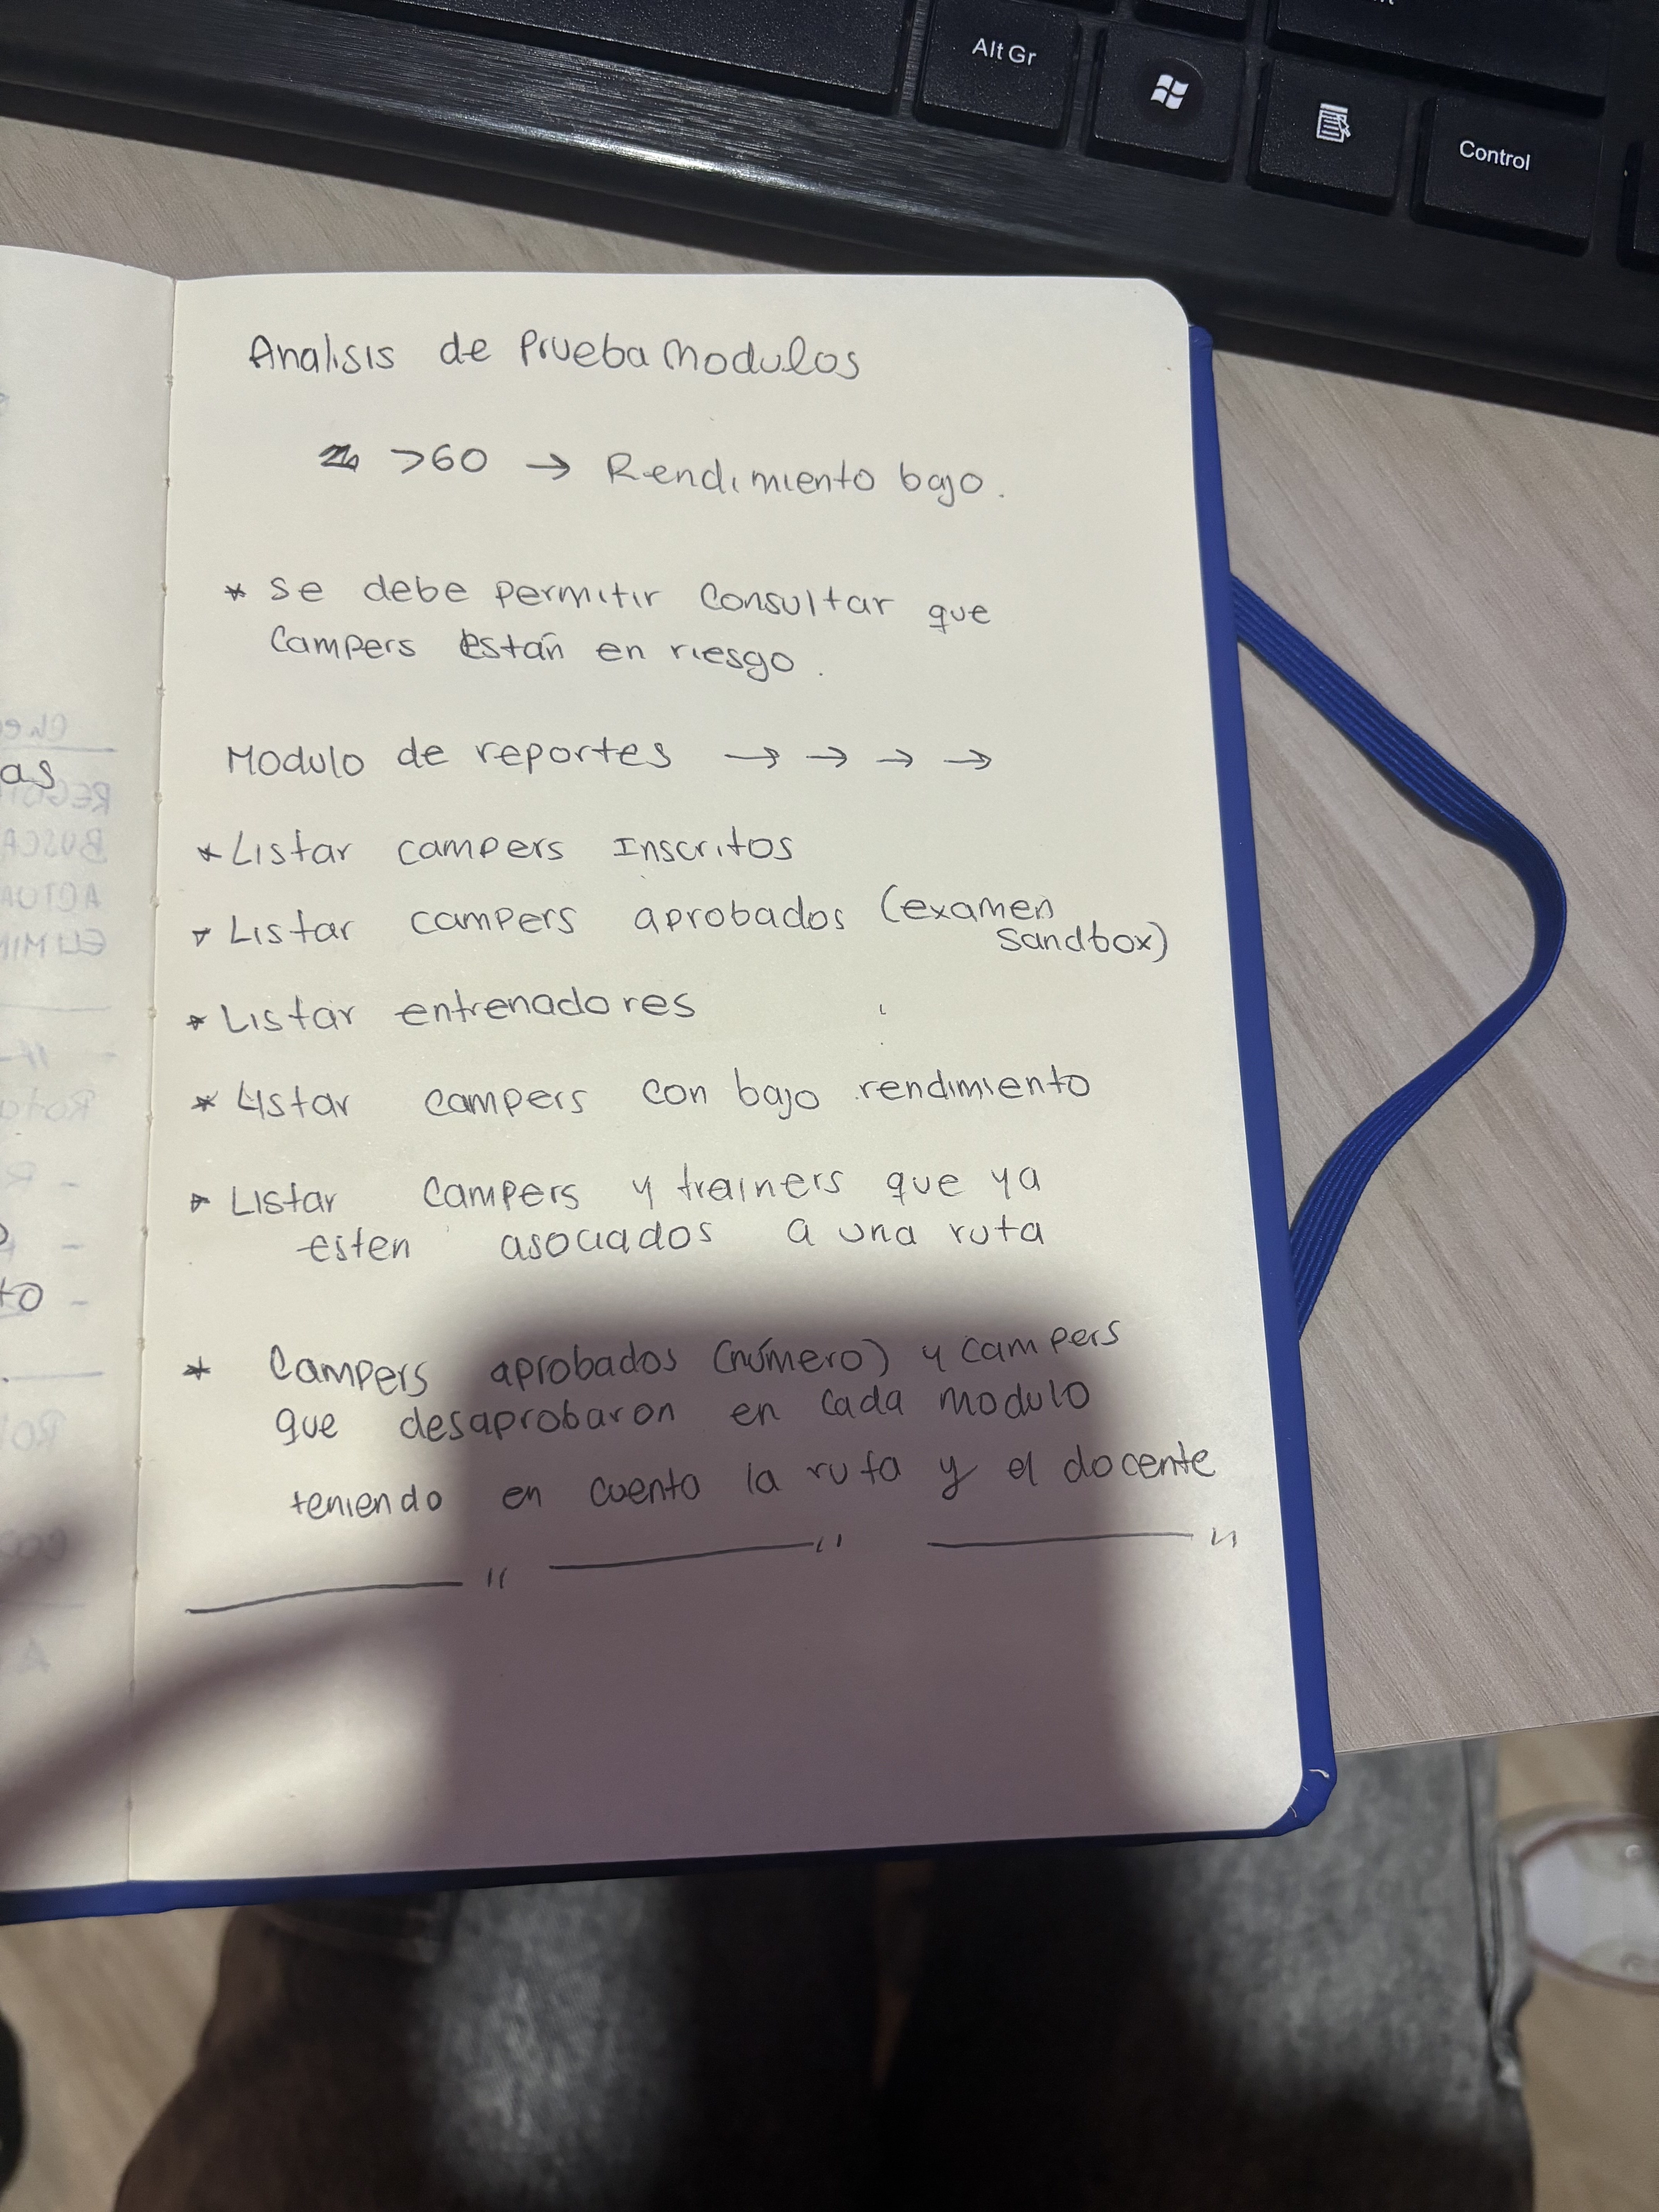 Alt Gr
Control
Analisis de Prueba Modulos
>60 → Rendimiento bajo.
* se debe permitir consultar que
campers están en riesgo.
Modulo de reportes → → → →
* Listar campers Inscritos
* Listar campers aprobados (examen
sandbox)
* Listar entrenadores
* Listar campers con bajo rendimiento
* Listar campers y trainers que ya
esten asociados a una ruta
* Campers aprobados (número) y campers
que desaprobaron en cada modulo
teniendo en cuenta la ruta y el docente
as